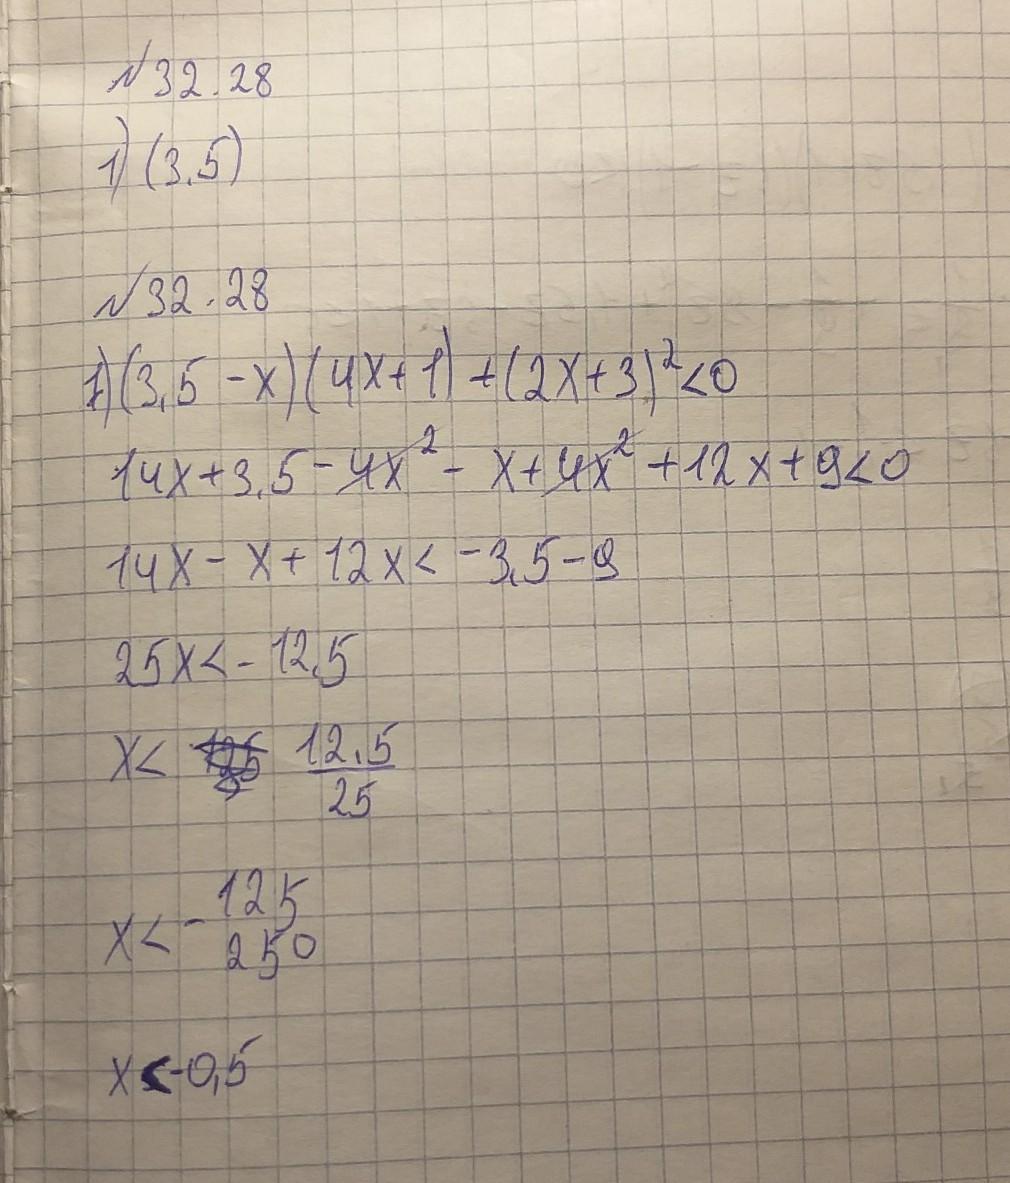 №32.28
1) (3,5)
№32.28
1) (3,5 - x)(4x+1) + (2x+3)² < 0
14x + 3,5 - 4x² - x + 4x² + 12x + 9 < 0
14x - x + 12x < -3,5 - 9
25x < - 12,5
x < 12,5/25
x < - 125/250
x < -0,5